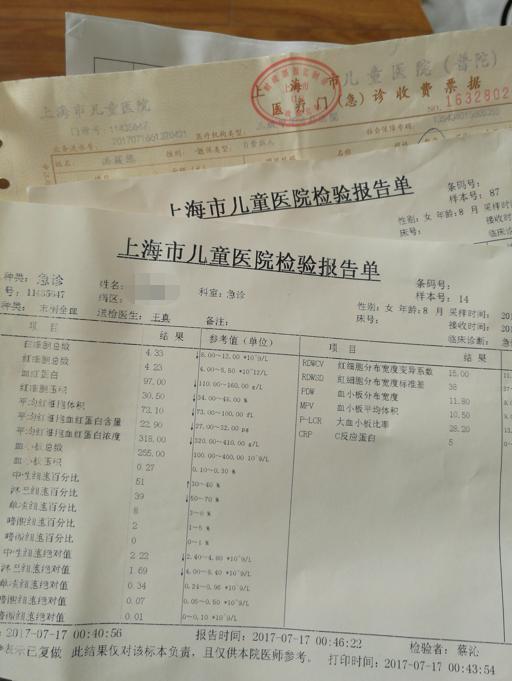 上海市儿童医院
上海市儿童医院(普陀)
医疗门(急)诊收费票据
NO. 1632802
门诊号: 11435647
医疗机构类型:
社会保障号码:
姓名:
性别:
医保类型: 自费病人
上海市儿童医院检验报告单
条码号:
样本号: 87
性别: 女 年龄: 8 月 采样时间:
床号:
接收时
临床诊
上海市儿童医院检验报告单
种类: 急诊
号: 11435647
种类: 末梢全血
姓名:
病区:
送检医生: 王真
科室: 急诊
备注:
条码号:
样本号: 14
性别: 女 年龄: 8 月 采样时间: 201
床号:
接收时间: 201
临床诊断: 急
项 目 结 果 参考值 (单位)
白细胞总数 4.33 ↓8.00-12.00 *10^9/L
红细胞总数 4.23 4.00-5.50 *10^12/L
血红蛋白 97.00 ↓110.00-160.00 g/L
红细胞压积 30.50 ↓34.00-48.00 %
平均红细胞体积 73.10 73.00-100.00 fL
平均红细胞血红蛋白含量 22.90 ↓27.00-32.00 pg
平均红细胞血红蛋白浓度 318.00 ↓320.00-410.00 g/L
血小板总数 255.00 100.00-400.00 10^9/L
血小板压积 0.27 0.10-0.30 %
中性细胞百分比 51 ↑30-40 %
淋巴细胞百分比 39 ↓50-70 %
单核细胞百分比 8 2-8 %
嗜酸细胞百分比 2 1-5 %
嗜碱细胞百分比 0 0-1 %
中性细胞绝对值 2.22 ↓2.40-4.80 *10^9/L
淋巴细胞绝对值 1.69 ↓4.00-8.40 *10^9/L
单核细胞绝对值 0.34 0.24-0.96 *10^9/L
嗜酸细胞绝对值 0.07 0.05-0.50 *10^9/L
嗜碱细胞绝对值 0.01 0-0.10 *10^9/L
项 目 结 果
RDWCV 红细胞分布宽度变异系数 15.00
RDWSD 红细胞分布宽度标准差 38
PDW 血小板分布宽度 11.80
MPV 血小板平均体积 10.50
P-LCR 大血小板比率 28.20
CRP C反应蛋白 5
: 2017-07-17 00:40:56 报告时间: 2017-07-17 00:46:22 检验者: 蔡沁
*表示已复做 此结果仅对该标本负责，且仅供本院医师参考。 打印时间: 2017-07-17 00:43:54